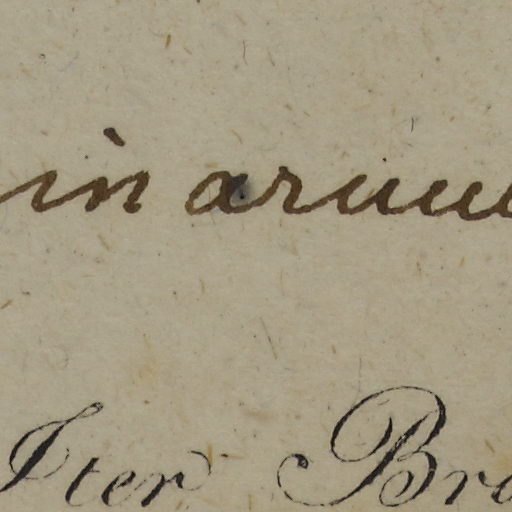 in aruu
Iter Bra